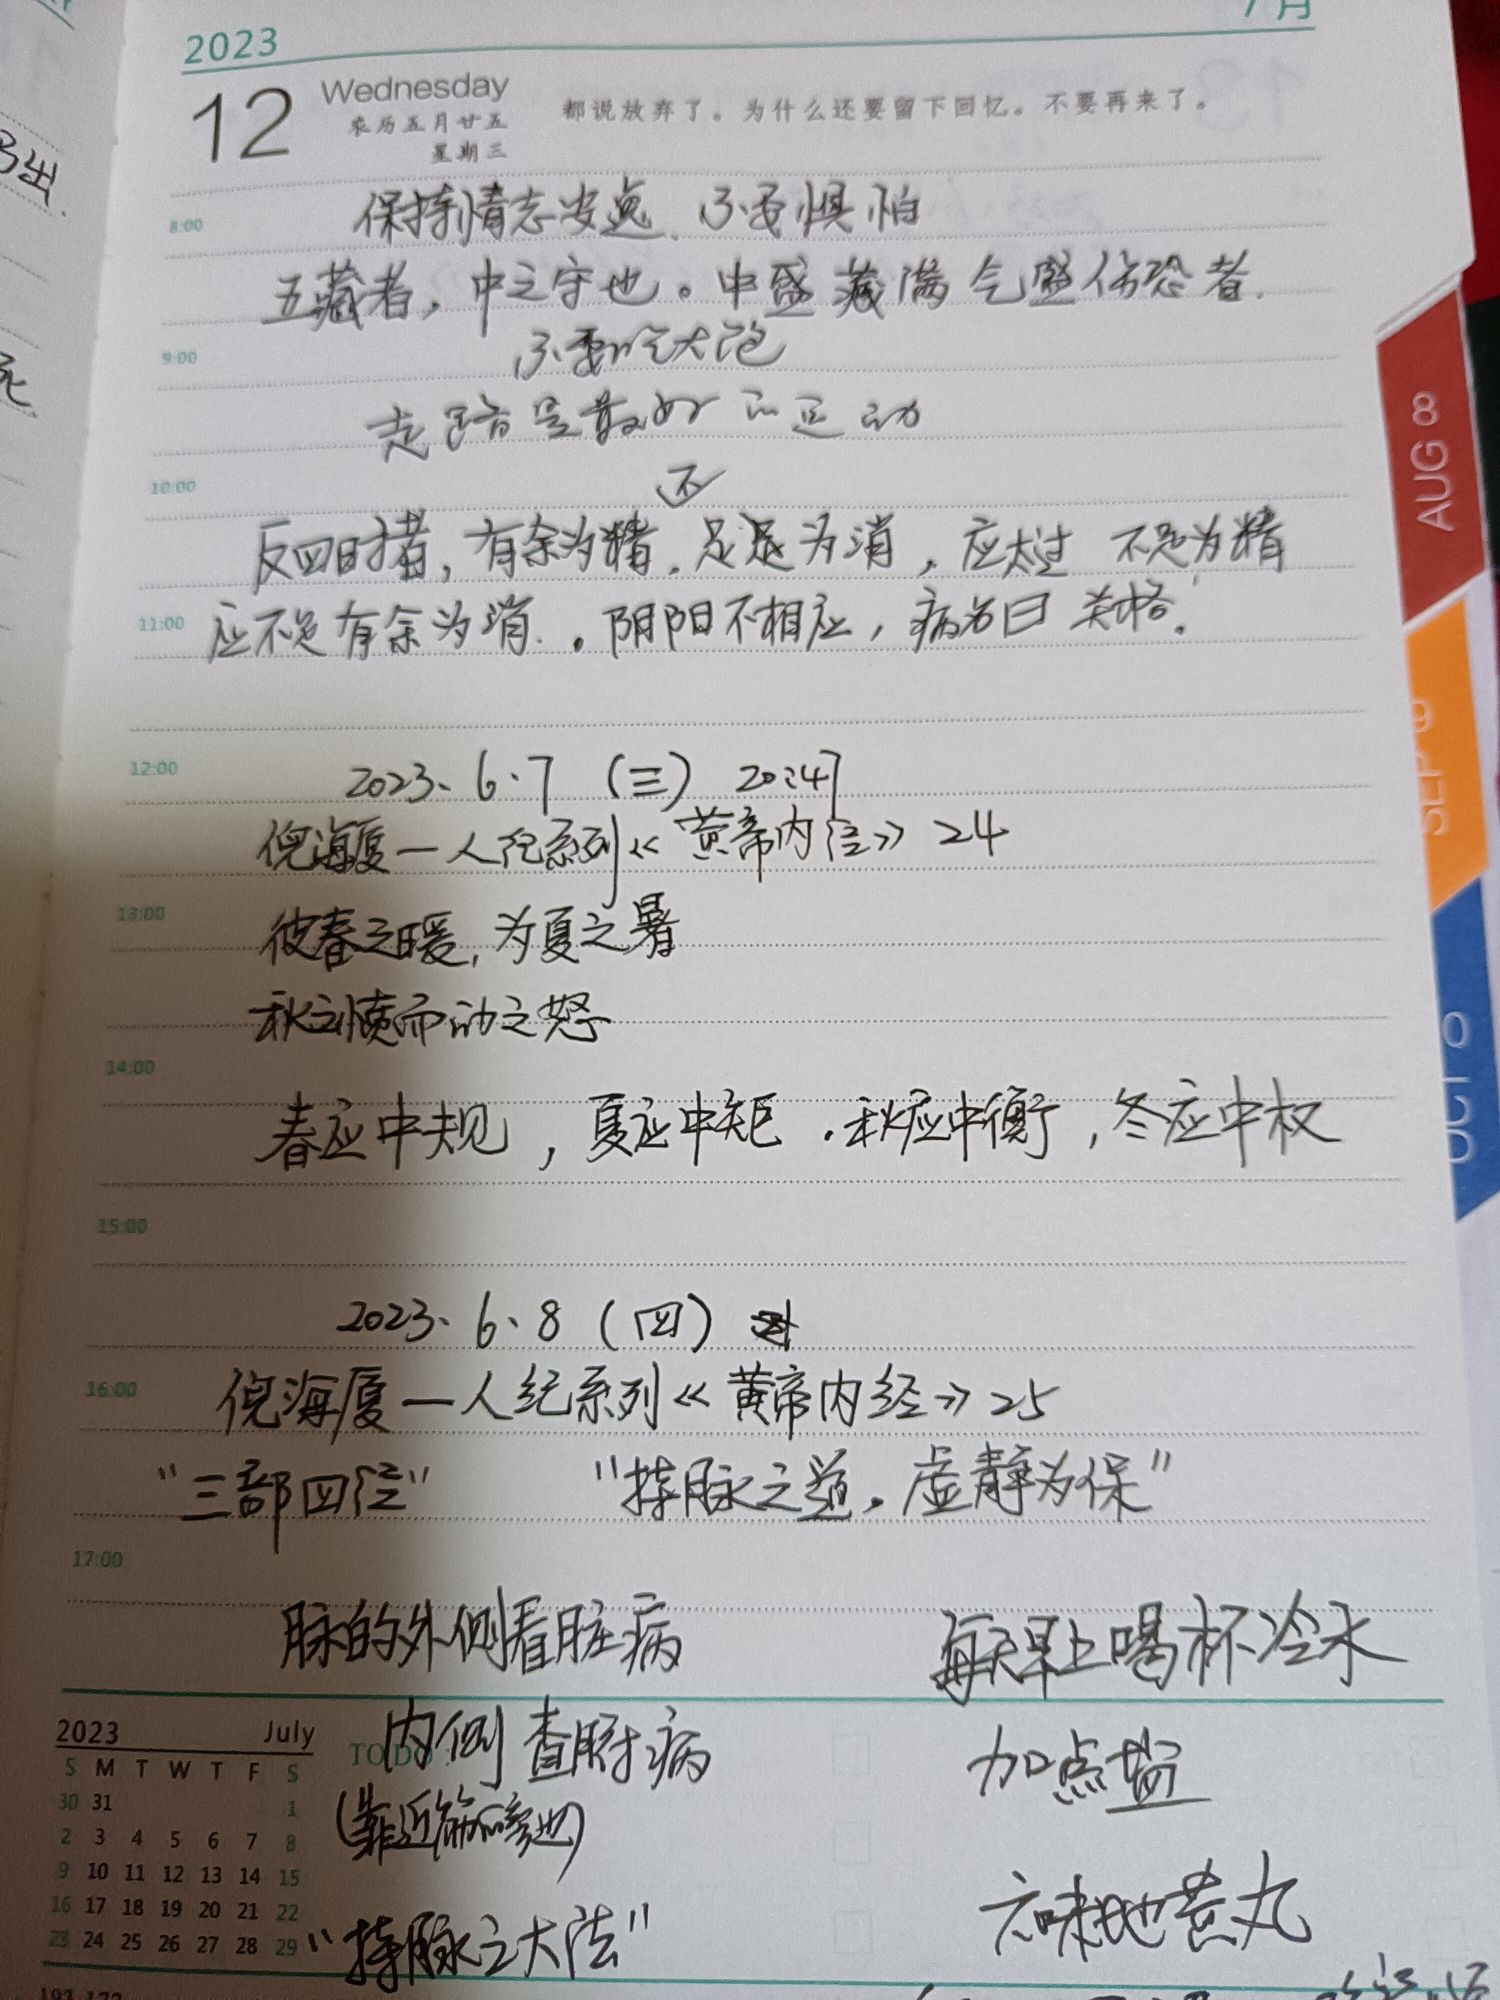 7月
2023
12 Wednesday
农历五月廿五
星期三
都说放弃了。为什么还要留下回忆。不要再来了。
保持情志安逸、不要惧怕
8:00
五藏者，中之守也。中盛藏满气盛伤恐者.
不要吃太饱
9:00
走路是最好的运动
10:00
还
反四时者，有余为精.足足为消，应太过 不足为精
11:00
应不足有余为消.。阴阳不相应，病名曰 关格.
12:00
2023.6.7（三）20:47
倪海厦一人纪系列《黄帝内经》24
13:00
彼春之暖，为夏之暑
秋之愤而动之怒
14:00
春应中规，夏应中矩.秋应中衡，冬应中权
15:00
2023.6.8（四）
16:00
倪海厦一人纪系列《黄帝内经》25
“三部四经” “持脉之道.虚静为保”
17:00
脉的外侧看脏病 每天早上喝杯冷水
内侧查腑病 加点盐
TO DO:
(靠近筋的旁边)
六味地黄丸
“持脉之大法”
2023 July
S M T W T F S
30 31 1
2 3 4 5 6 7 8
9 10 11 12 13 14 15
16 17 18 19 20 21 22
23 24 25 26 27 28 29
AUG 8
SEP 9
OCT 0